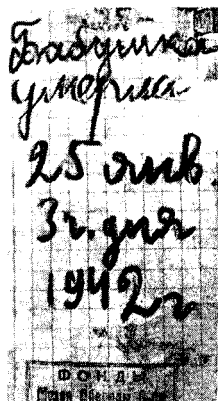 Бабушка
умерла
25 янв.
3 ч. дня
1942 г
ФОНДЫ